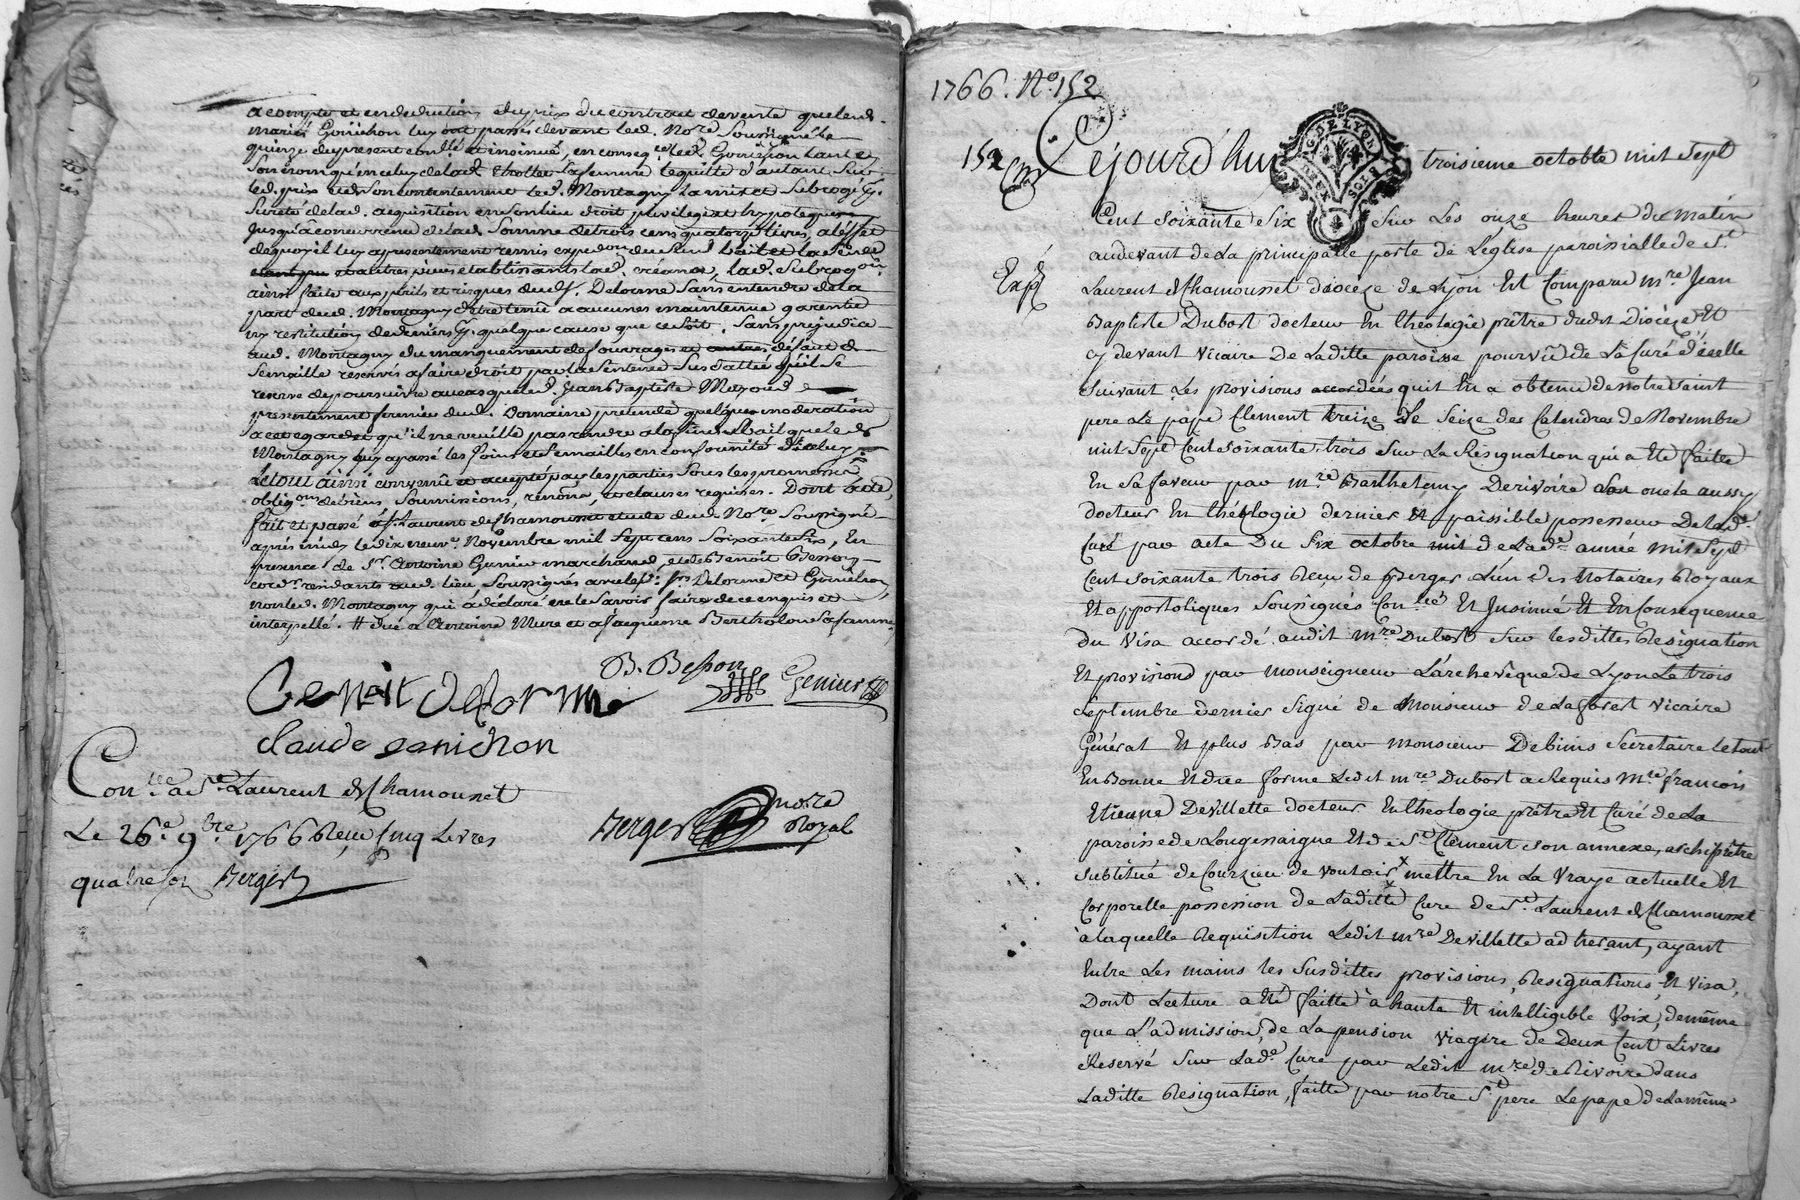 acompte et en deduction du prix du contrat de vente que lesd.
mariés Gonichon luy ont passés devant led. Nore. Soussigné le
quinze du present conllé et insinué, en conseq.ce led. Gonichon tant en
Son nom qu'en celuy de lad. Sa femme le quitte d'autant Sur
led. prix et de Son consentement led. Montagny la mis et Subrogé
Sureté de lad. acquisition en Son lieu droit privilege et hypoteques
jusqu'à concurrence de lad. Somme de trois cens quatorze livres,
dequoy il luy a presentement remis du Seul bail et la
et autres pieces etablissants lad. créance, lad. Subrogon.
ainsi faite aux perils et risques dud. Delorme Sans entendre de la
part dud. Montagny d'etre tenu a aucunes maintenue garentie
ny restitution de deniers p. quelque cause que ce Soit, Sans prejudice
aud. Montagny du manquement des ouvrages et défaut de
Semaille reservés a faire droit par la Sentence Sus dattée qu'il Se
reserve de poursuivre au cas que led. Jean Baptiste
presentement fermier dud. Domaine pretende quelque moderation
a cet egard et qu'il ne veuille pas rendre a la fin du bail que led.
Montagny luy a passé les foins et Semailles en conformité d'iceluy
Le tout ainsi convenu et accepté par les parties Sous les promesses
obligons. de biens Soumissions, renons, et clauses requises. Dont acte,
fait et passé a St. Laurent de Chamousset etude dud. Nore. Soussigné
aprés midy le dix neuve. Novembre mil Sept cens Soixante Six, En
presence de Sr. Antoine Genier marchand et de Benoit Besson
cord.r residants aud. lieu Soussignés avec led. Sr. Delorme et Gonichon,
non led. Montagny qui a déclaré ne le Savoir faire de ce enquis et
interpellé. # düe a Antoine Mure et a Jacqueme Bertholon Sa femme
B. Besson Genier
Benoit Delorme
claude gonichon
Con.lée a St. Laurent de Chamousset
Le 26e. 9bre. 1766 Reçu Cinq Livres
quatre sols Berger
Berger nore. Royal
1766. No. 152
152
Cejourd'huy troisieme octobre mil Sept
G. DE LYON
DEUX SOLS
Cent Soixante Six Sur Les onze heures du matin
audevant de La principalle porte de L'eglise paroissialle de St.
Expé
Laurent de Chamousset dioceze de Lyon Est Comparu mre. Jean
Baptiste Dubost docteur En theologie prêtre dudit Diocèze Et
cy devant Vicaire De Laditte paroisse pourvû de La Cure d'icelle
Suivant Les provisions accordées quil En a obtenu de Notre Saint
pere Le pape Clement treize de Seize des Calendres de Novembre
mil Sept Cent Soixante trois Sur La Resignation qui a Eté faitte
En Sa faveur par mre. Barthelemy Derivoire Son oncle aussy
docteur En théologie dernier Et paissible possesseur De lade.
Cure par acte Du Six octobre mil de lade. année mil Sept
Cent Soixante trois Reçu de Berger L'un des Notaires Royaux
Et appostoliques Soussignés Con.lée Et Insinué Et En Consequence
du Visa accordé audit mre. Dubost Sur lesdittes Resignation
Et provisions par monseigneur L'archevêque de Lyon Le trois
Septembre dernier Signé de Monsieur de Laforest Vicaire
Général Et plus Bas par monsieur Debinis Secretaire le tout
En Bonne Et due forme Ledit mre. Dubost a Requis Mre. francois
Etienne Devillette docteur En theologie prêtre Et Curé de La
paroisse de Longessaigne Et de St. Clement son annexe, archiprêtre
Substitué de Courzieu de Vouloir × mettre En La Vraye actuelle Et
Corporelle possession de Laditte Cure de St. Laurent de Chamousset
à laquelle Requisition Ledit mre. Devillette adherant, ayant
Entre Les mains les Susdittes provisions, Resignations, Et Visa,
Dont Lecture a Eté faitte à haute Et intelligible Voix, de même
que L'admission, de La pension Viagere de Deux Cent Livres
Reservé Sur lade. Cure par Ledit mre. de Rivoire dans
Laditte Resignation, faitte par notre St. pere Le pape de la même